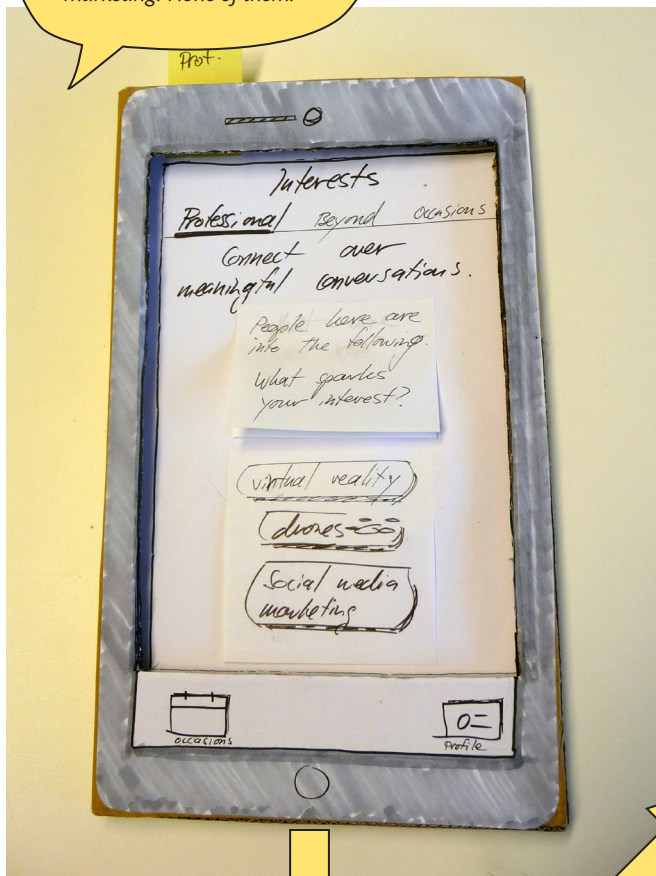 marketing? None of them.
Prof.
Interests
Professional Beyond Occasions
Connect over
meaningful conversations.
People here are
into the following.
What sparks
your interest?
virtual reality
drones
Social media
marketing
occasions
Profile